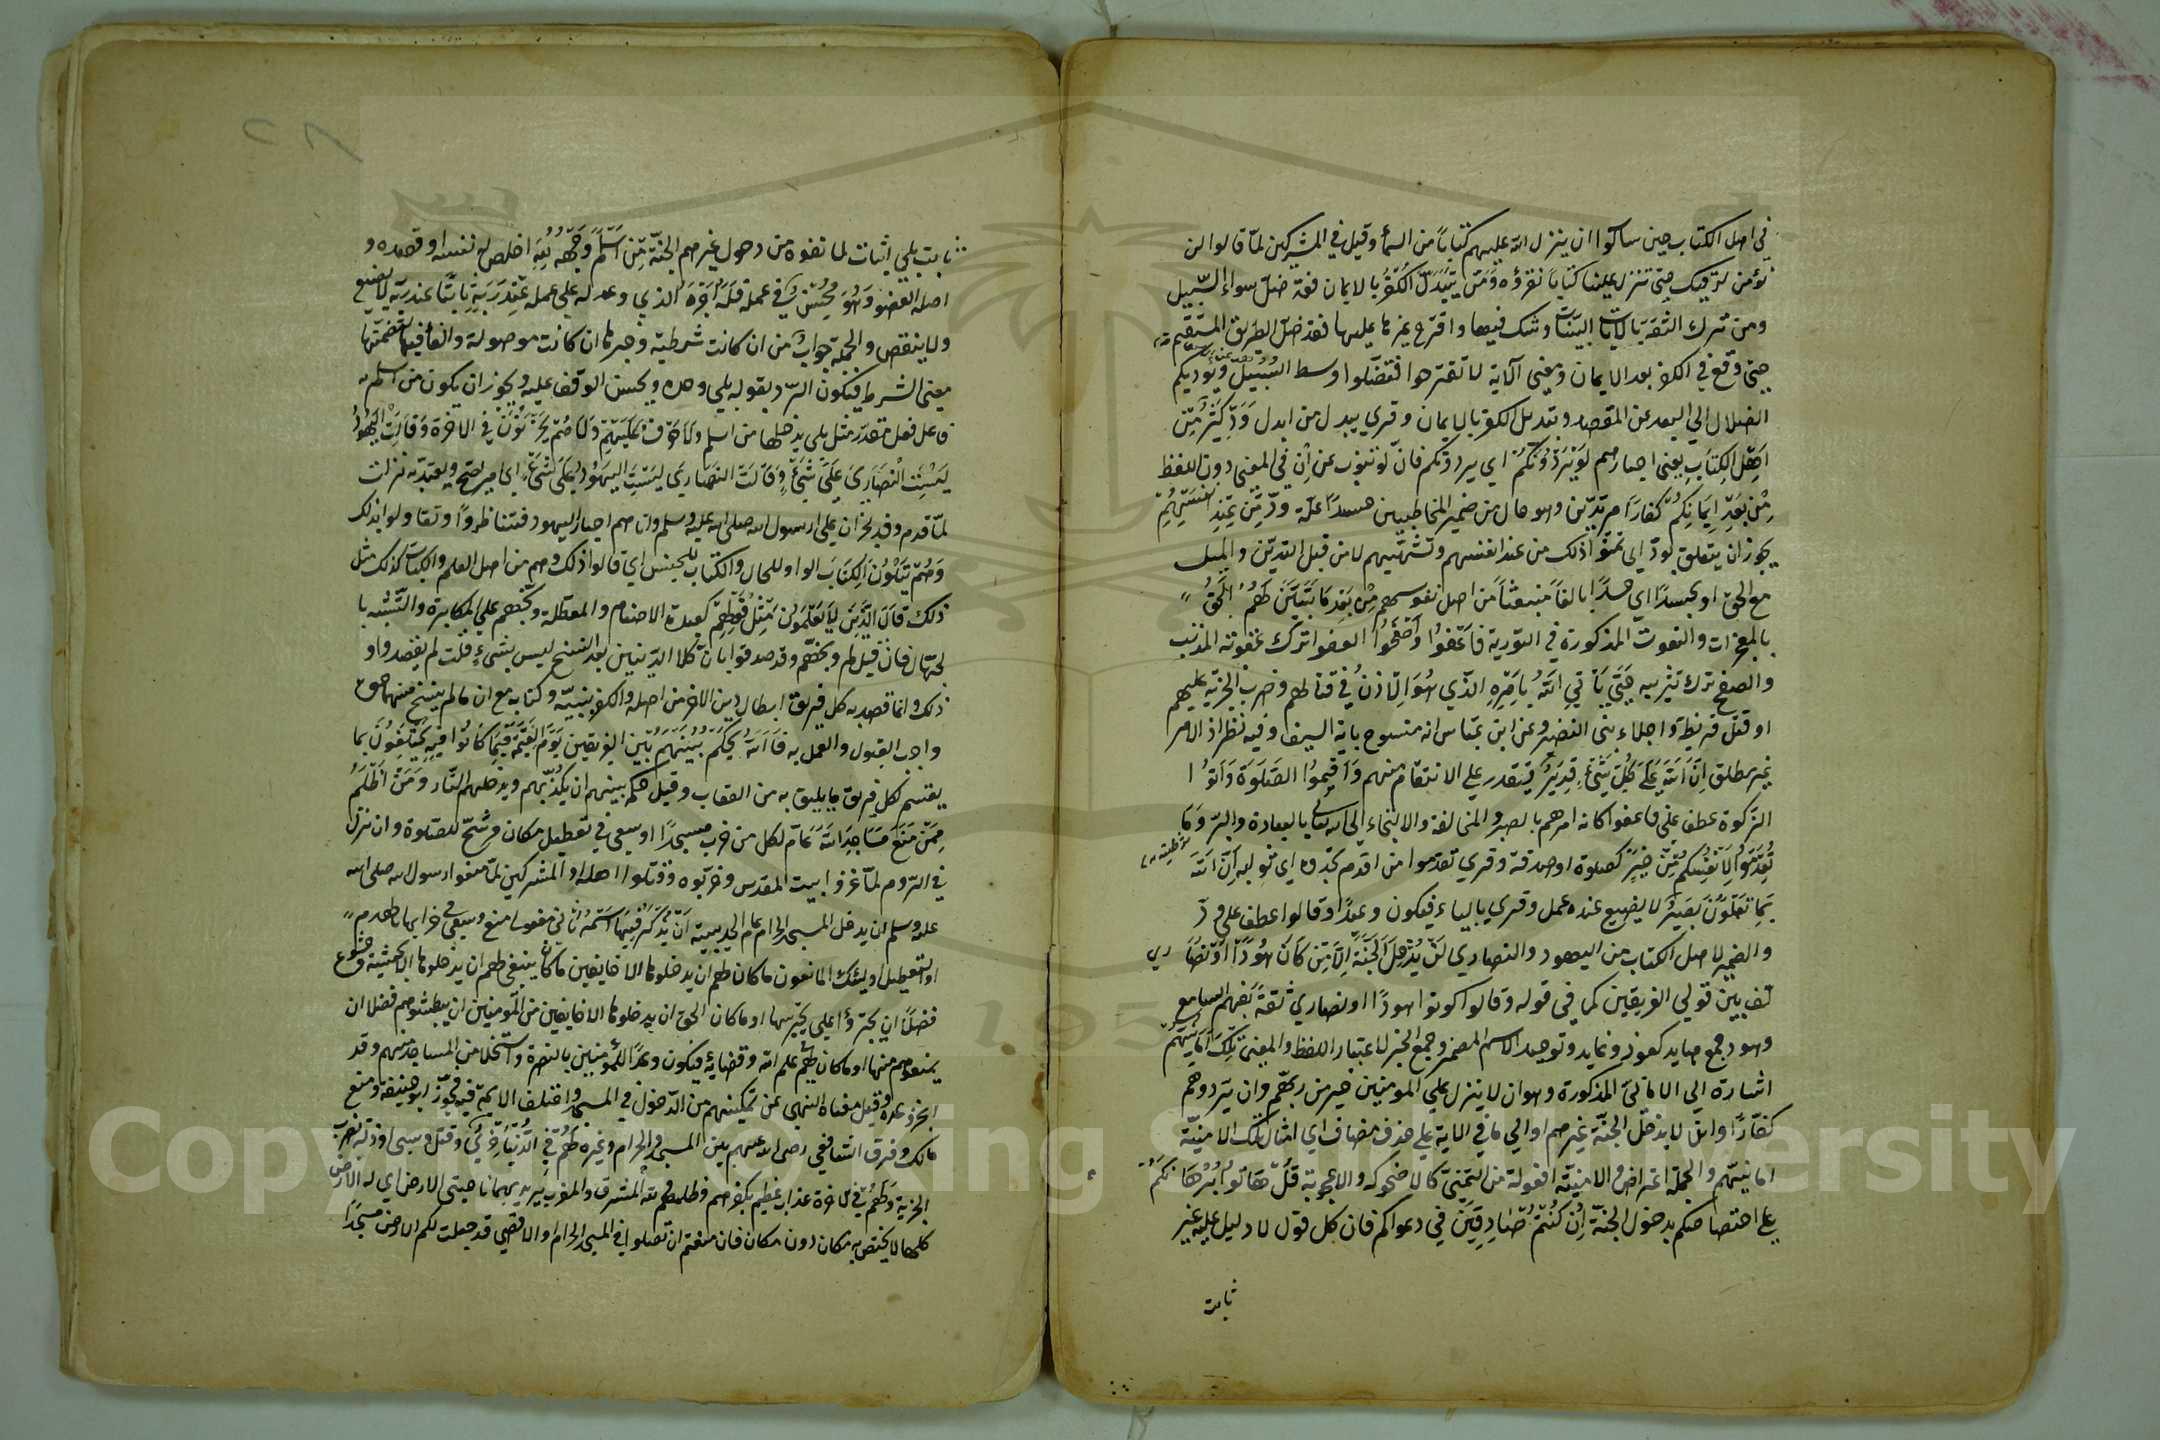 في اهل الكتاب حين سالوا ان ينزل الله عليهم كتابا من السماء وقيل في المشركين لما قالوا لن
نؤمن لرقيك حتى تنزل علينا كتابا نقرؤه وَمَنْ يَتَبَدَّلِ الْكُفْرَ بالايمان فقد ضل سواء السبيل
ومن ترك الثقة بالايات البينات وشك فيها واقترح غيرها عليها فقد ضل الطريق المستقيم
حتى وقع في الكفر بعد الايمان ومعنى الاية لا تقترحوا فتضلوا وسط السبيل ويؤديكم
الضلال الى البعد عن المقصد وتبديل الكفر بالايمان وقري يبدل من ابدل وَدَّ كَثِيرٌ مِنْ
اَهْلِ الْكِتَابِ يعني احبارهم لَوْ يَرُدُّونَكُمْ اي يردوكم فان لو تنوب عن ان في المعنى دون اللفظ
مِنْ بَعْدِ اِيمَانِكُمْ كُفَّارًا مرتدين وهو حال من ضمير المخاطبين حسدا علة ود مِنْ عِنْدِ اَنْفُسِهِمْ
يجوز ان يتعلق بود اي تمنوا ذلك من عند انفسهم وتشهيهم لا من قبل التدين والميل
مع الحق او بحسدا اي حسدا بالغا منبعثا من اصل نفوسهم مِنْ بَعْدِ مَا تَبَيَّنَ لَهُمُ الْحَقُّ
بالمعجزات والنعوت المذكورة في التورية فَاعْفُوا وَاصْفَحُوا العفو ترك عقوبة المذنب
والصفح ترك تثريبه حَتَّى يَاْتِيَ اللهُ بِاَمْرِهِ الذي هو الاذن في قتالهم وضرب الجزية عليهم
او قتل قريظة واجلاء بني النضير وعن ابن عباس انه منسوخ باية السيف وفيه نظر اذ الامر
غير مطلق اِنَّ اللهَ عَلَى كُلِّ شَيْءٍ قَدِيرٌ فيقدر على الانتقام منهم وَاَقِيمُوا الصَّلَوةَ وَاتُوا
الزكوة عطف على فاعفوا كانه امرهم بالصبر والمخالفة والالتجاء الى الله تعالى بالعبادة والبر وَمَا
تُقَدِّمُوا لِاَنْفُسِكُمْ مِنْ خَيْرٍ كصلوة او صدقة وقري تقدموا من اقدم تجدوه اي ثوابه اِنَّ اللهَ
بِمَا تَعْمَلُونَ بَصِيرٌ لا يضيع عنده عمل وقري بالياء فيكون وعيدا وقالوا عطف على ود
والضمير لاهل الكتاب من اليهود والنصاري لَنْ يَدْخُلَ الْجَنَّةَ اِلَّا مَنْ كَانَ هُودًا اَوْ نَصَارَي
لف بين قولي الفريقين كما في قوله وقالوا كونوا هودا او نصاري ثقة بفهم السامع
وهود جمع هايد كعوذ وعايد وتوحيد الاسم المضمر وجمع الخبر لاعتبار اللفظ والمعنى تِلْكَ اَمَانِيُّهُمْ
اشارة الى الاماني المذكورة وهو ان لا ينزل على المومنين خير من ربهم وان يردوهم
كفارا وان لا يدخل الجنة غيرهم او الى ما في الاية على حذف مضاف اي امثال تلك الامنية
امانيهم والجملة اعتراض والامنية افعولة من التمني كالاضحوكه والاعجوبة قُلْ هَاتُوا بُرْهَانَكُمْ
على اختصاصكم بدخول الجنة اِنْ كُنْتُمْ صَادِقِينَ في دعواكم فان كل قول لا دليل عليه غير
ثابت
ثابت بلي اثبات لما نفوه من دخول غيرهم الجنة مَنْ اَسْلَمَ وَجْهَهُ لِلهِ اخلص له نفسه او قصده و
اصله العضو وَهُوَ مُحْسِنٌ في عمله فَلَهُ اَجْرُهُ الذي وعد له على عمله عِنْدَ رَبِّهِ ثابتا عند ربه لا يضيع
ولا ينقص والجملة جواب من ان كانت شرطية وخبرها ان كانت موصولة والفاء فيها لتضمنها
معنى الشرط فيكون الرد بقوله بلي وحده ويحسن الوقف عليه ويجوز ان يكون من اسلم
فاعل فعل مقدر مثل بلي يدخلها من اسلم وَلَا خَوْفٌ عَلَيْهِمْ وَلَا هُمْ يَحْزَنُونَ في الاخرة وَقَالَتِ الْيَهُودُ
لَيْسَتِ النَّصَارَي عَلَى شَيْءٍ وَقَالَتِ النَّصَارَي لَيْسَتِ الْيَهُودُ عَلَى شَيْءٍ اي امر يصح ويعتد به نزلت
لما قدم وفد نجران على رسول الله صلى الله عليه وسلم واتاهم احبار اليهود فتناظروا وتقاولوا بذلك
وَهُمْ يَتْلُونَ الْكِتَابَ الواو للحال والكتاب للجنس اي قالوا ذلك وهم من اهل العلم والكتاب كذلك مثل
ذلك قَالَ الَّذِينَ لَا يَعْلَمُونَ مِثْلَ قَوْلِهِمْ كعبدة الاصنام والمعطلة وبخهم على المكابرة والتشبه با
لجهال فان قيل لم وبخهم وقد صدقوا بان كلا الدينين بعد النسخ ليس بشيء قلت لم يقصدوا
ذلك وانما قصد به كل فريق ابطال دين الاخر من اصله والكفر بنبيه وكتابه مع ان ما لم ينسخ منهما حق
واجب القبول والعمل به فَاللهُ يَحْكُمُ بَيْنَهُمْ بين الفريقين يَوْمَ الْقِيمَةِ فِيمَا كَانُوا فِيهِ يَخْتَلِفُونَ بما
يقسم لكل فريق ما يليق به من العقاب وقيل حكمه بينهم ان يكذبهم ويدخلهم النار وَمَنْ اَظْلَمُ
مِمَّنْ مَنَعَ مَسَاجِدَ اللهِ عام لكل من خرب مسجدا او سعى في تعطيل مكان مرشح للصلوة وان نزل
في الروم لما غزوا بيت المقدس وخربوه وقتلوا اهله او المشركين لما منعوا رسول الله صلى الله
عليه وسلم ان يدخل المسجد الحرام عام الحديبية اَنْ يُذْكَرَ فِيهَا اسْمُهُ ثاني مفعولي منع وسعى في خرابها بالهدم
او التعطيل اوليك المانعون ما كان لهم ان يدخلوها الا خايفين ما كان ينبغي لهم ان يدخلوها الا بخشية وخشوع
فضلا ان يجترؤا على تخريبها او ما كان الحق ان يدخلوها الا خايفين من المومنين ان يبطشوهم فضلا ان
يمنعوهم منها او ما كان لهم في علم الله وقضايه فيكون وعدا للمومنين بالنصرة واستخلاص المساجد منهم وقد
انجز وعده وقيل معناه النهي عن تمكينهم من الدخول في المسجد واختلف الايمة فيه فجوز ابو حنيفة ومنع
مالك وفرق الشافعي رضي الله عنهم بين المسجد الحرام وغيره لَهُمْ فِي الدُّنْيَا خِزْيٌ وقتل وسبي او ذلة بضرب
الجزية وَلَهُمْ في الاخرة عذاب عظيم بكفرهم وظلمهم ولله المشرق والمغرب يريد بهما ناحيتي الارض اي له الارض
كلها لا يختص به مكان دون مكان فان منعتم ان تصلوا في المسجد الحرام والاقصي قد جعلت لكم الارض مسجدا
Copyright © King Saud University